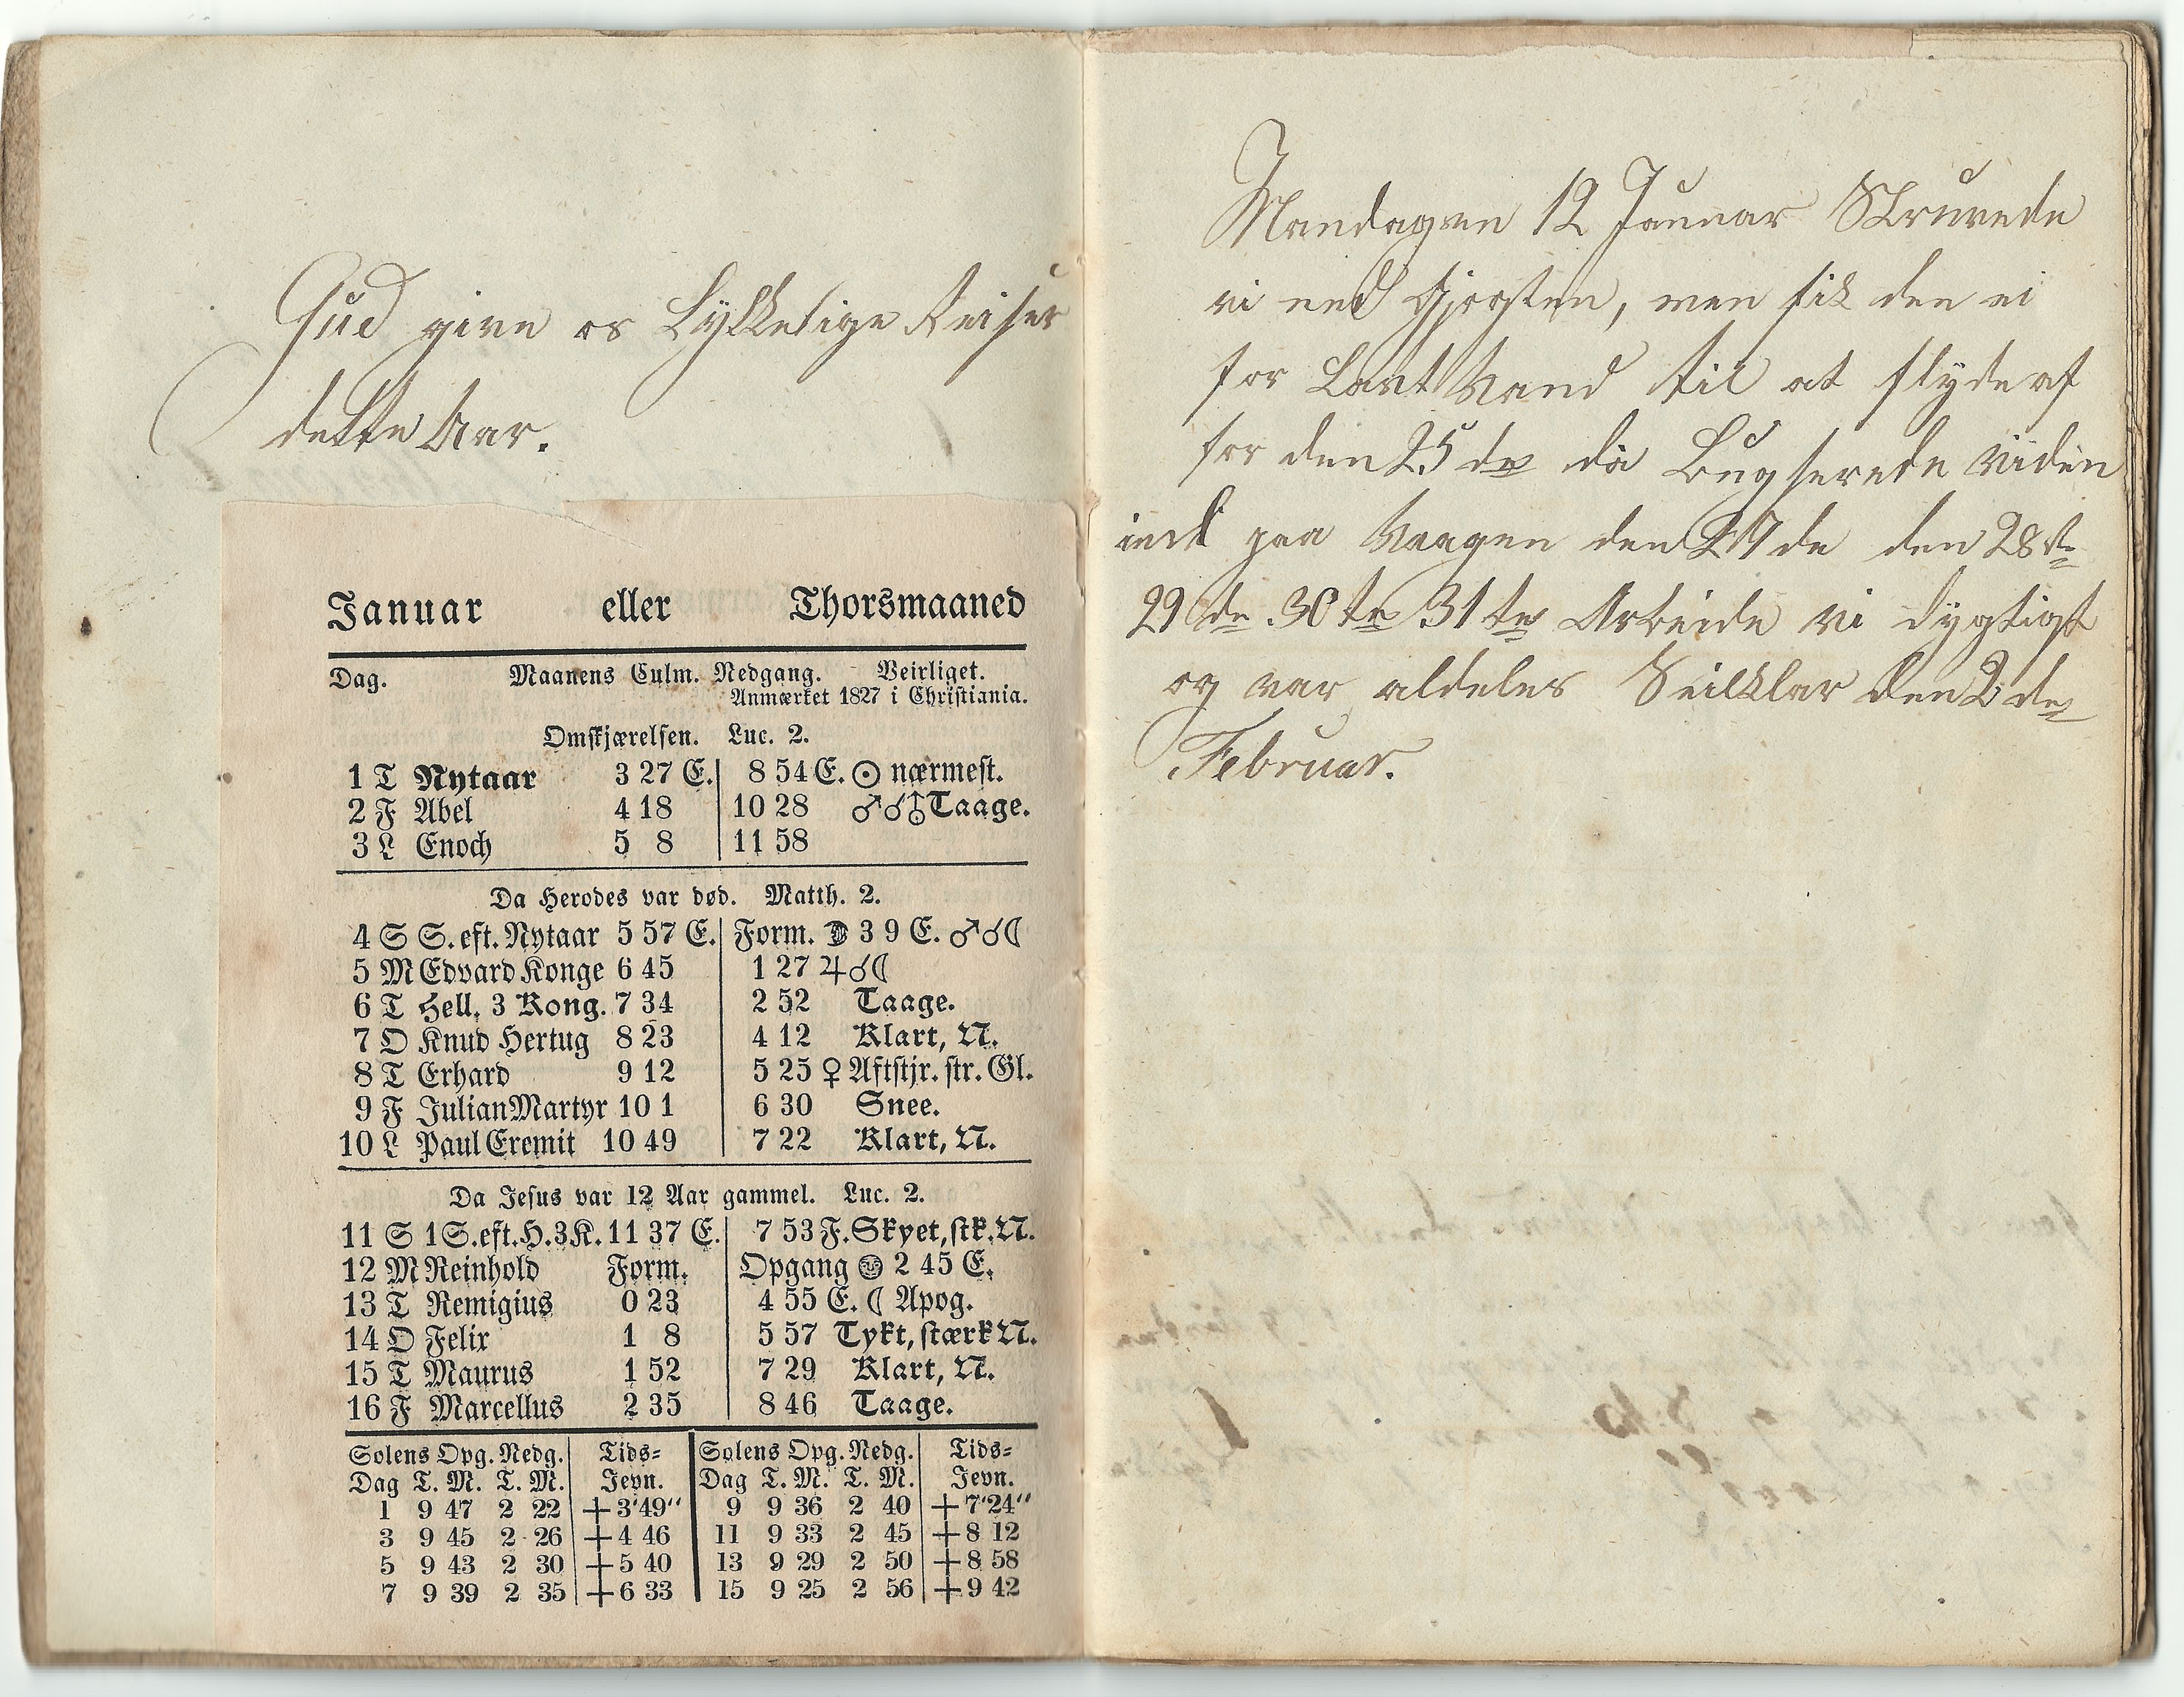 Gud give os Lykkelige Reiser
dette Aar.
Januar eller Thorsmaaned
Dag. Maanens Culm. Nedgang. Veirliget.
Anmærket 1827 i Christiania.
Omskjærelsen. Luc. 2.
1 T Nytaar 3 27 E. 8 54 E. ☉ nærmest.
2 F Abel 4 18 10 28 ♂☌♅ Taage.
3 L Enoch 5 8 11 58
Da Herodes var død. Matth. 2.
4 S S. eft. Nytaar 5 57 E. Form. 3 9 E. ♂☌☾
5 M Edvard Konge 6 45 1 27 ♃☌☾
6 T Hell. 3 Kong. 7 34 2 52 Taage.
7 O Knud Hertug 8 23 4 12 Klart, N.
8 T Erhard 9 12 5 25 ♀ Aftstjr. str. Gl.
9 F Julian Martyr 10 1 6 30 Snee.
10 L Paul Eremit 10 49 7 22 Klart, N.
Da Jesus var 12 Aar gammel. Luc. 2.
11 S 1 S. eft. H. 3 K. 11 37 E. 7 53 F. Skyet, stk. N.
12 M Reinhold Form. Opgang 2 45 E.
13 T Remigius 0 23 4 55 E. ☾ Apog.
14 O Felix 1 8 5 57 Tykt, stærk N.
15 T Maurus 1 52 7 29 Klart, N.
16 F Marcellus 2 35 8 46 Taage.
Solens Opg. Nedg. Tids= Solens Opg. Nedg. Tids=
Dag T. M. T. M. Jevn. Dag T. M. T. M. Jevn.
1 9 47 2 22 +3'49" 9 9 36 2 40 +7'24"
3 9 45 2 26 +4 46 11 9 33 2 45 +8 12
5 9 43 2 30 +5 40 13 9 29 2 50 +8 58
7 9 39 2 35 +6 33 15 9 25 2 56 +9 42
Mandagen 12 Januar Skruvede
vi ned Gjogten, men fik den ei
for Lavt Vand til at flyde af
før den 25 de da Bugserede vi den
ind paa Vaagen den 27 de den 28 de
29 de 30 te 31 te Arbeide vi dygtigt
og var aldeles Seilklar den 2 de
Februar.